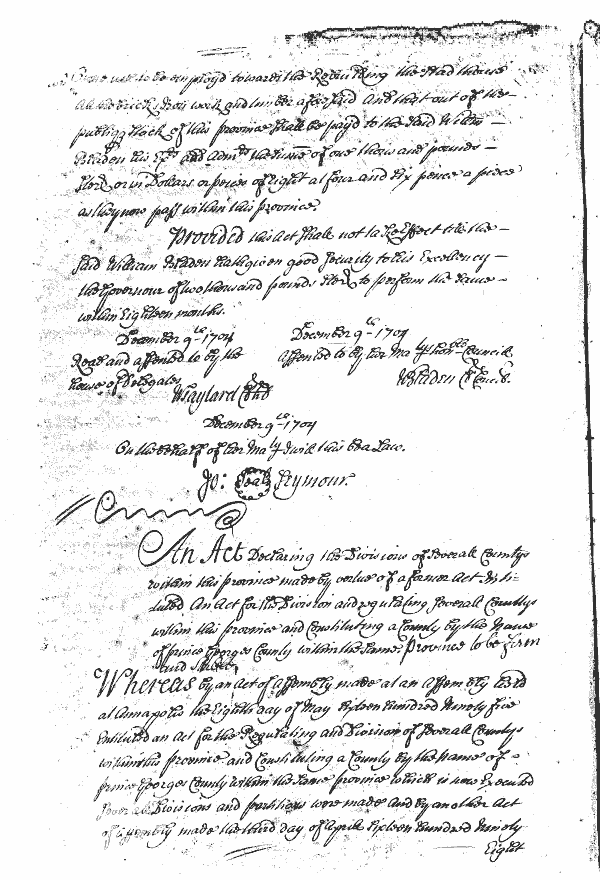 to be employd towards the Rebuilding the Stadthouse
all the bricks Iron work and timber aforesaid And that out of the
publiqq stock of this province shall be payd to the said Willm
Bladen his Exrs and Admrs the sume of one thousand pounds
sterl or in Dollars or peices of Eight at four and six pence a peice
as they now pass within this province.
Provided this Act shall not ta Re Effect till the
said William Bladen hath given good security to his Excellency
the Governour of two thousand pounds sterl to perform the same
within Eighteen months.
December 9th 1704
Read and assented to by the
house of Delegates
W Taylard Cl hd
December 9th 1704
Assented to by her Maty's honble Councill
W Bladen Cl Concil.
December 9th 1704
On the behalf of her Maty I will this be a Law.
Jo: Seal Seymour.
An Act Declaring the Divisions of severall Countys
within this province made by vertue of a former Act Insti-
tuted An Act for the Division and regulating severall Countys
within this province and Constituting a County by the Name
of prince Georges County within the same province to be firm
and stable,
Whereas by an Act of Assembly made at an Assembly held
at Annapolis the Eighth day of May sixteen hundred Ninety five
Entituled an Act for the Regulating and Division of severall Countys
within this province and Constituting a County by the name of
prince Georges County within the same province which is now Executed
severall Divisions and partitions were made And by another Act
of Assembly made the third day of Aprile sixteen hundred Ninety
Eight